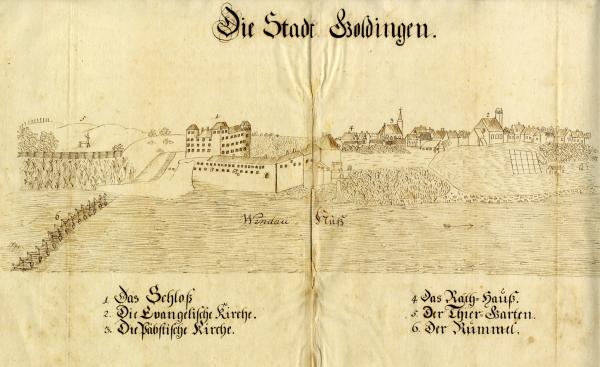 Die Stadt Goldingen.
Wendau Fluß
1. Das Schloß
2. Die Evangelische Kirche.
3. Die Päbstische Kirche.
4. Das Rath-Hauß.
5. Der Thier-Garten.
6. Der Rummel.